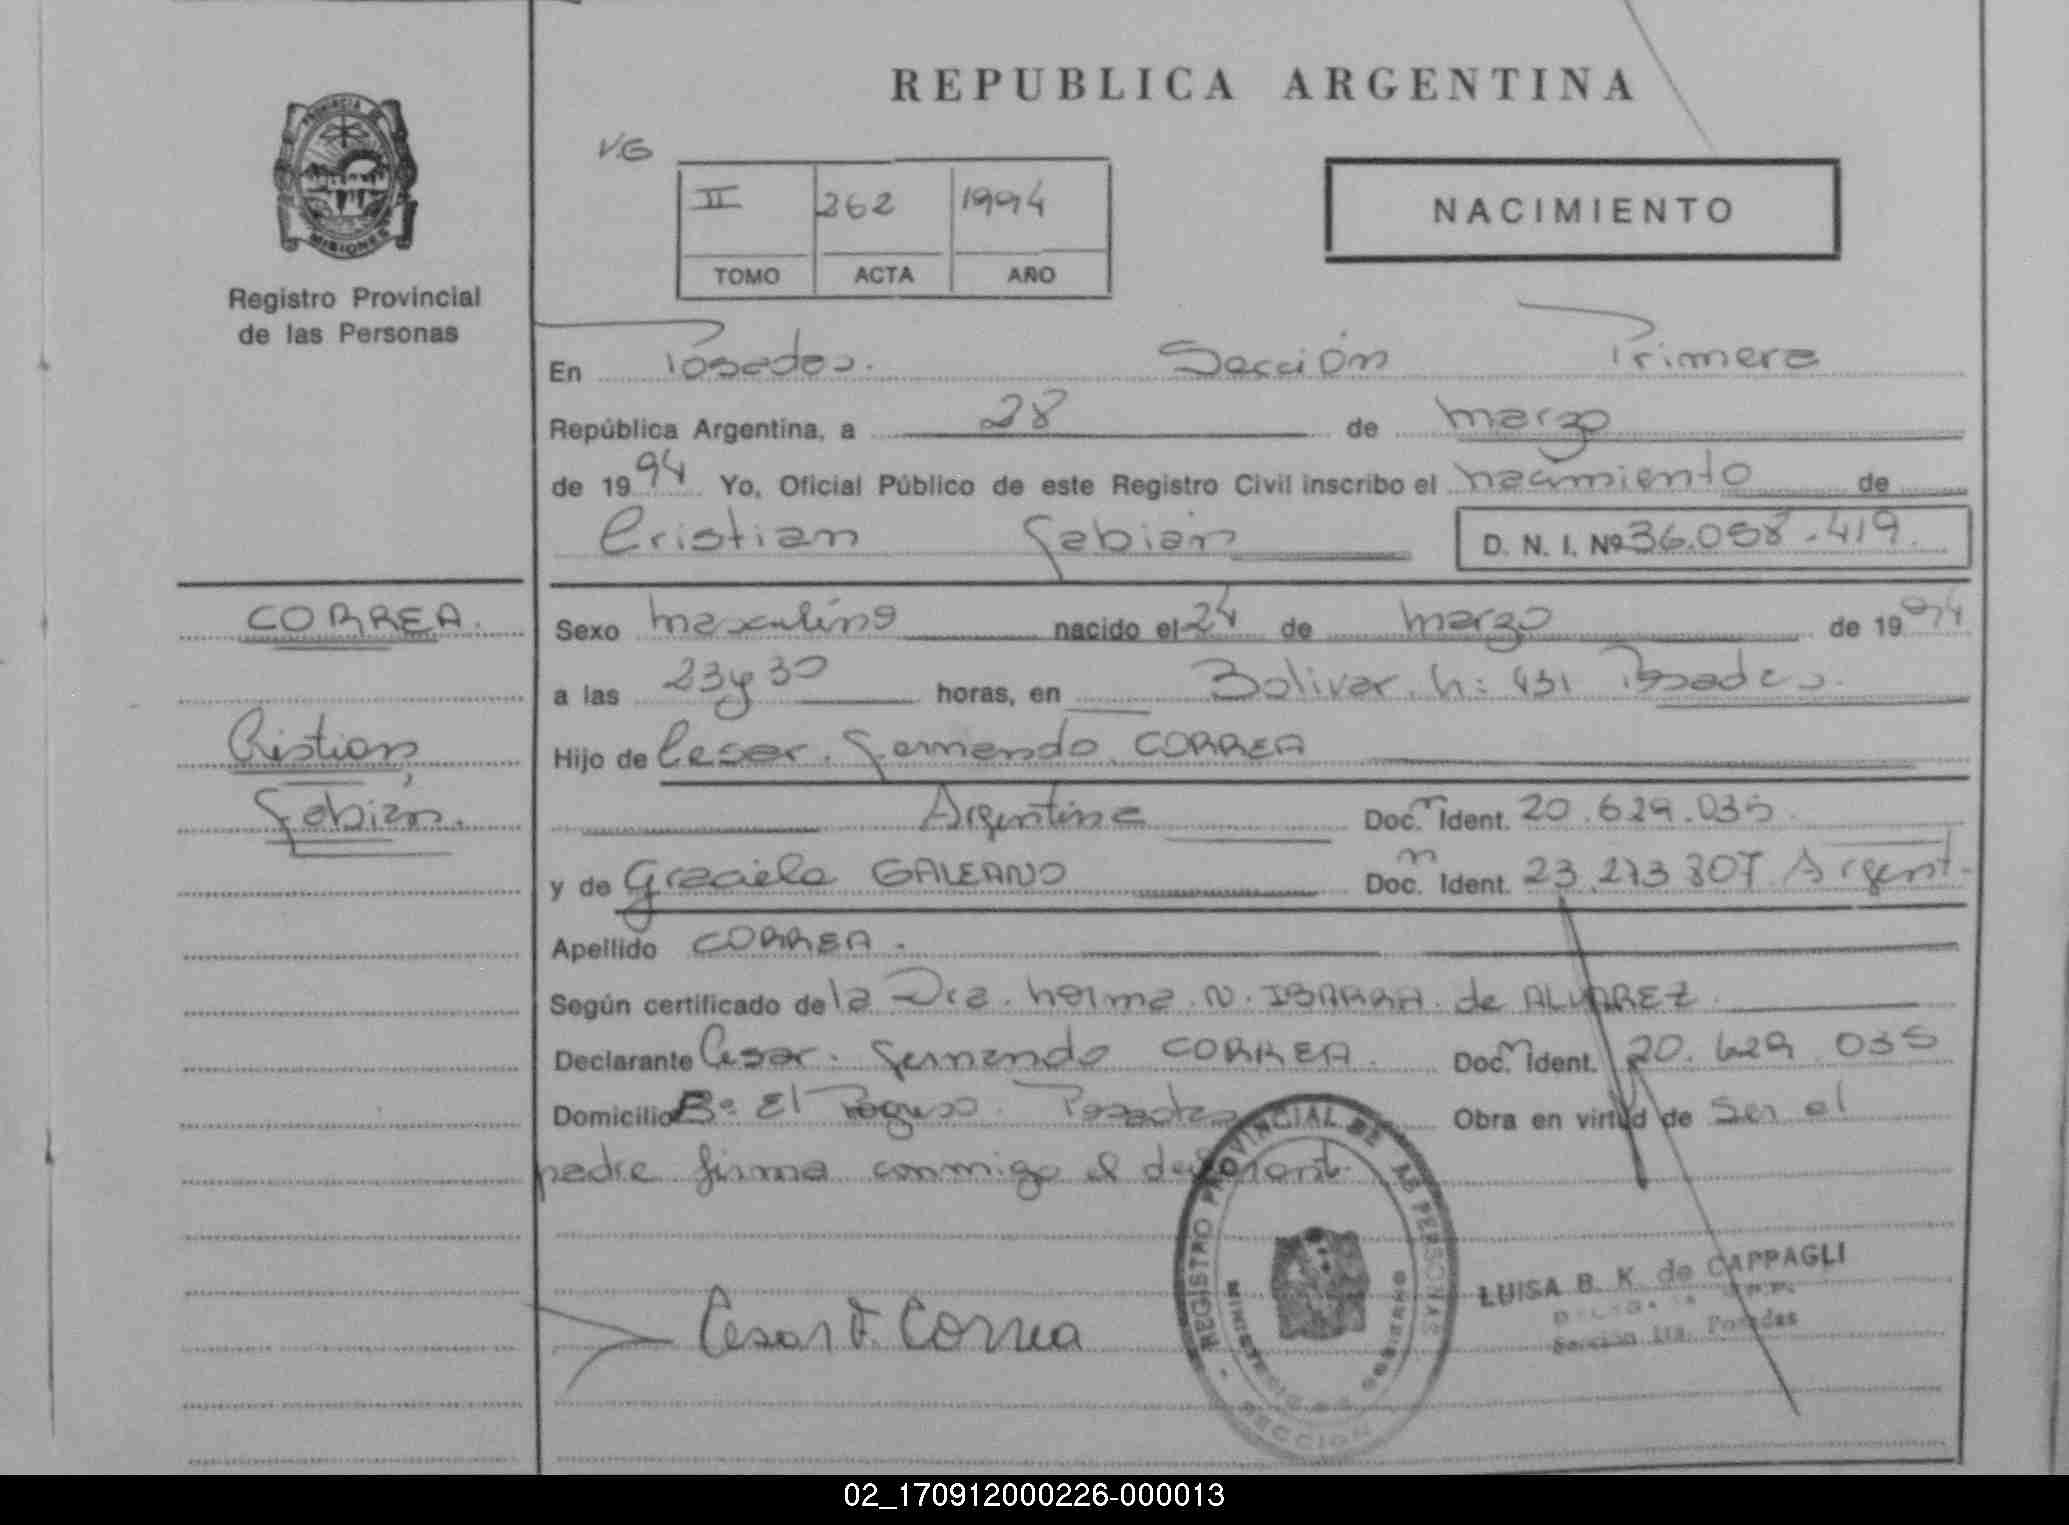 REPUBLICA ARGENTINA
PROVINCIA DE
MISIONES
Registro Provincial
de las Personas
VG
II 262 1994
TOMO ACTA AÑO
NACIMIENTO
En Posadas. Sección Primera
República Argentina, a 28 de marzo
de 1994 Yo, Oficial Público de este Registro Civil inscribo el nacimiento de
Cristian Fabián D. N. I. Nº 36.058.419.
CORREA.
Cristian,
Fabián.
Sexo masculino nacido el 24 de marzo de 1994
a las 23 y 30 horas, en Bolivar n: 431 Posadas.
Hijo de Cesar. Fernando CORREA
Argentina Doc. Ident. 20.629.035.
y de Graciela GALEANO Doc. Ident. 23.273.807 Argent.
Apellido CORREA.
Según certificado de la Dra. Norma N. IBARRA de ALVAREZ.
Declarante Cesar. Fernando CORREA. Doc. Ident. 20.629.035
Domicilio Bº El Posadas Obra en virtud de ser el
padre firma conmigo el declarante.
Cesar F. Correa
REGISTRO PROVINCIAL DE LAS PERSONAS
MINISTERIO DE GOBIERNO
SECCION
LUISA B. K. de CAPPAGLI
Sección 1ra. Posadas
02_170912000226-000013